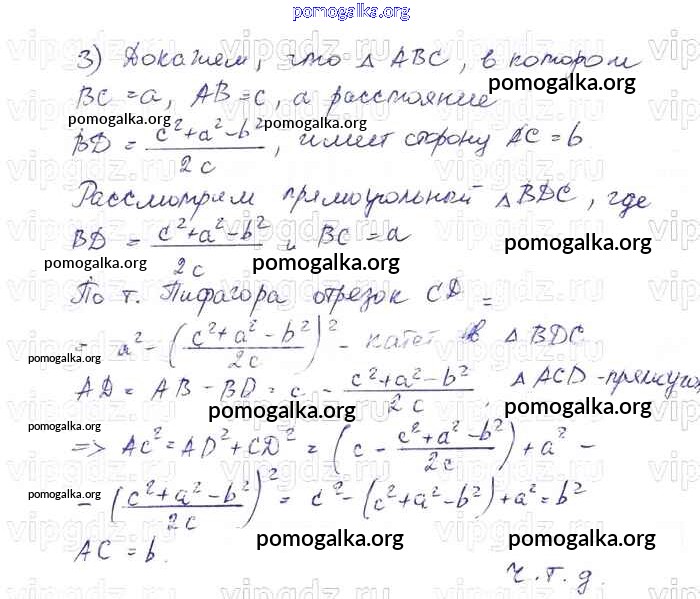 pomogalka.org
3) Докажем, что △ ABC, в котором
BC = a, AB = c, а расстояние
pomogalka.org
pomogalka.org pomogalka.org
BD = (c² + a² − b²)/2c, имеет сторону AC = b
Рассмотрим прямоугольный △ BDC, где
BD = (c² + a² − b²)/2c и BC = a
pomogalka.org
pomogalka.org pomogalka.org
По т. Пифагора отрезок CD =
= a² − ((c² + a² − b²)/2c)² − катет в △ BDC
pomogalka.org
AD = AB − BD = c − (c² + a² − b²)/2c. △ ACD - прямоуго
pomogalka.org pomogalka.org
pomogalka.org
=> AC² = AD² + CD² = (c − (c² + a² − b²)/2c) + a² −
pomogalka.org
− ((c² + a² − b²)/2c)² = c² − (c² + a² − b²) + a² = b²
AC = b.
pomogalka.org pomogalka.org
ч.т.д.